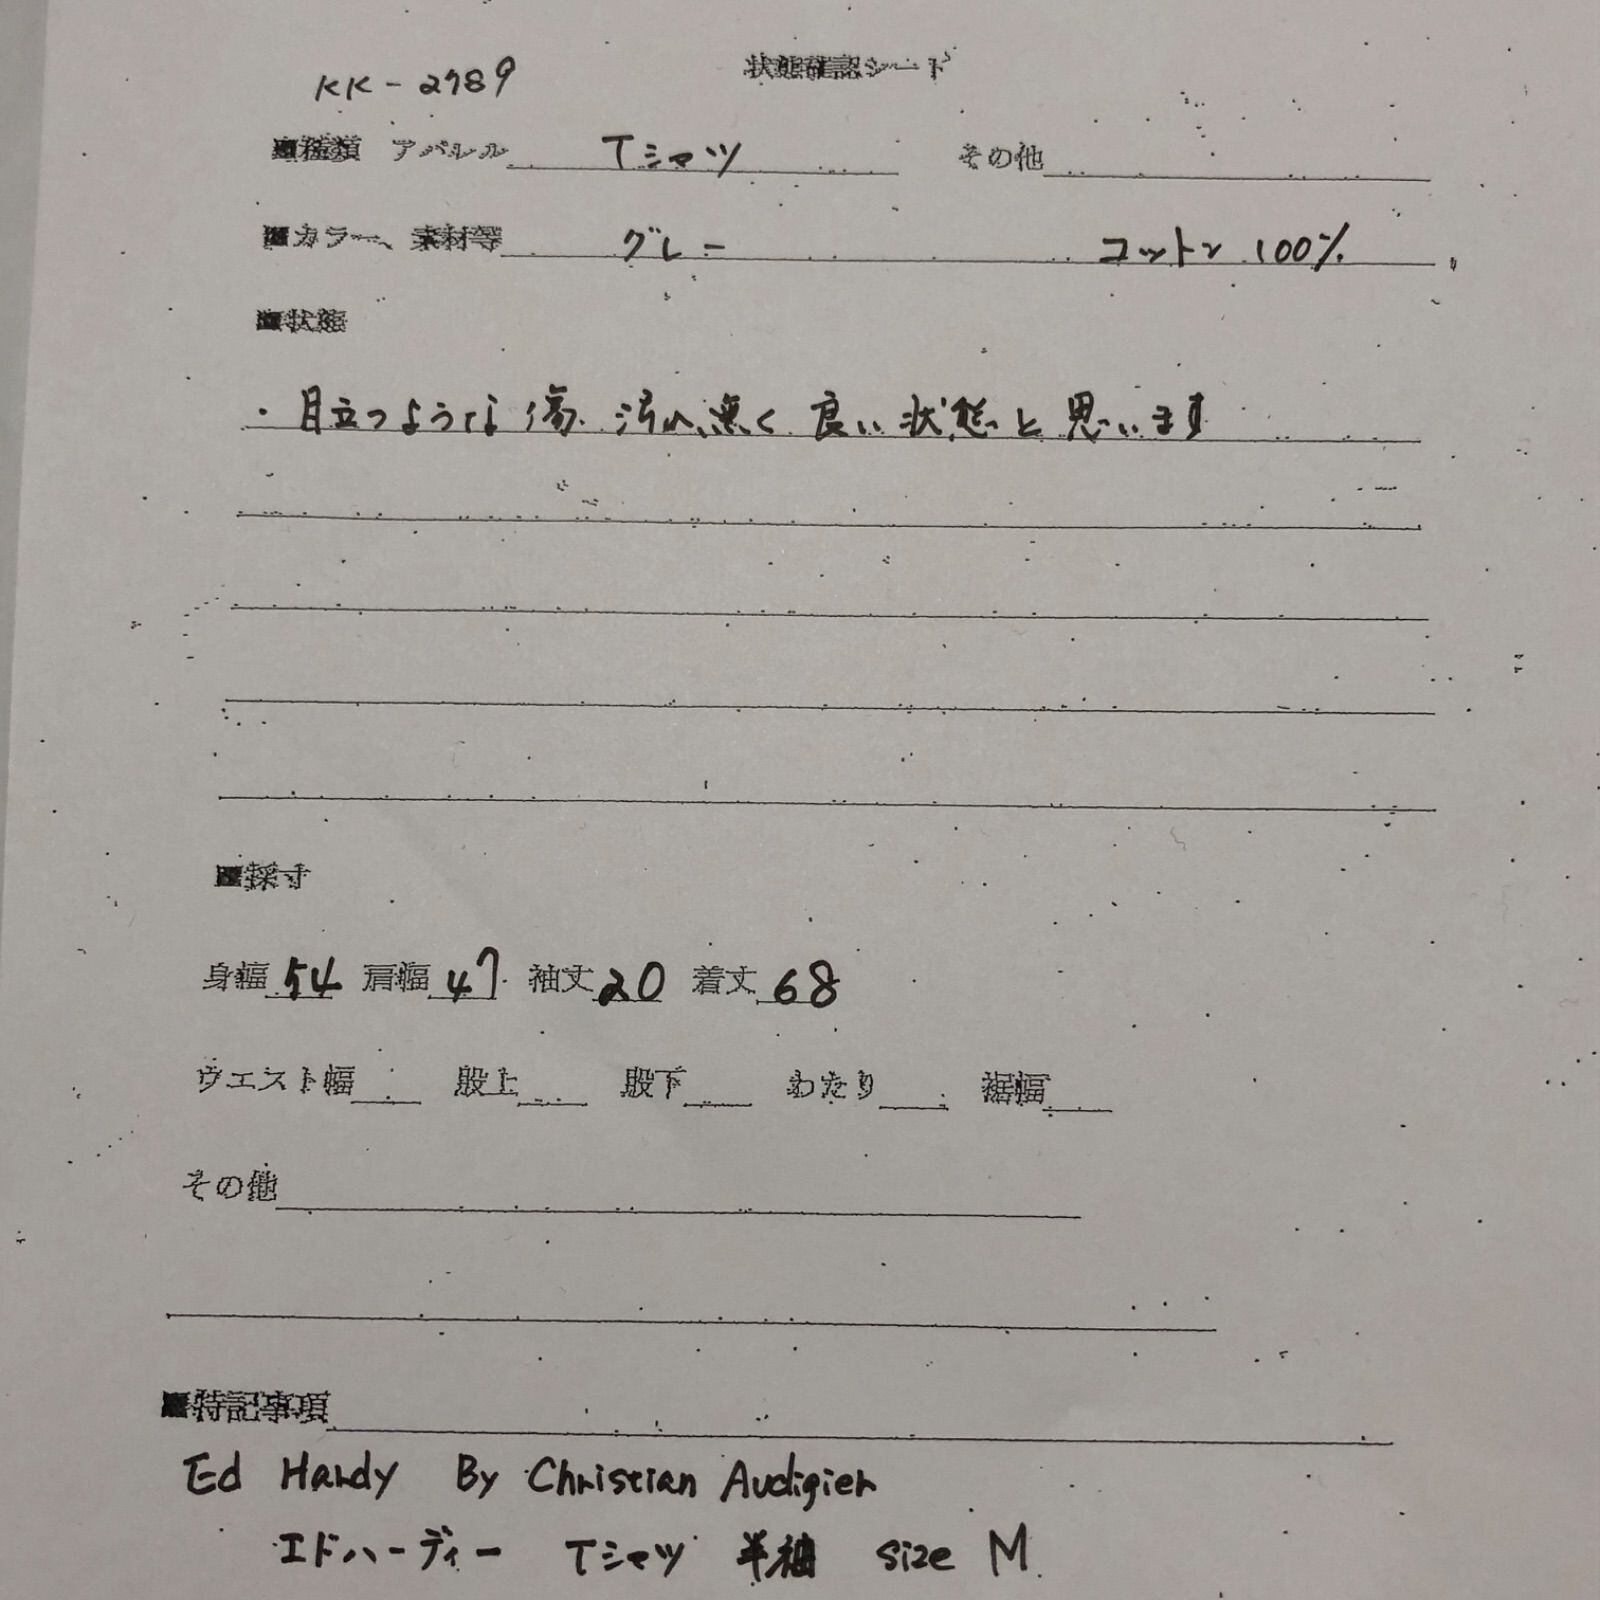 状態確認シート
KK-2789
■種類 アパレル Tシャツ その他
■カラー、素材等 グレー コットン 100%
■状態
・目立つような傷、汚れ、無く 良い状態と思います
■採寸
身幅 54 肩幅 47 袖丈 20 着丈 68
ウエスト幅 股上 股下 わたり 裾幅
その他
■特記事項
Ed Hardy By Christian Audigier
エドハーディー Tシャツ 半袖 size M